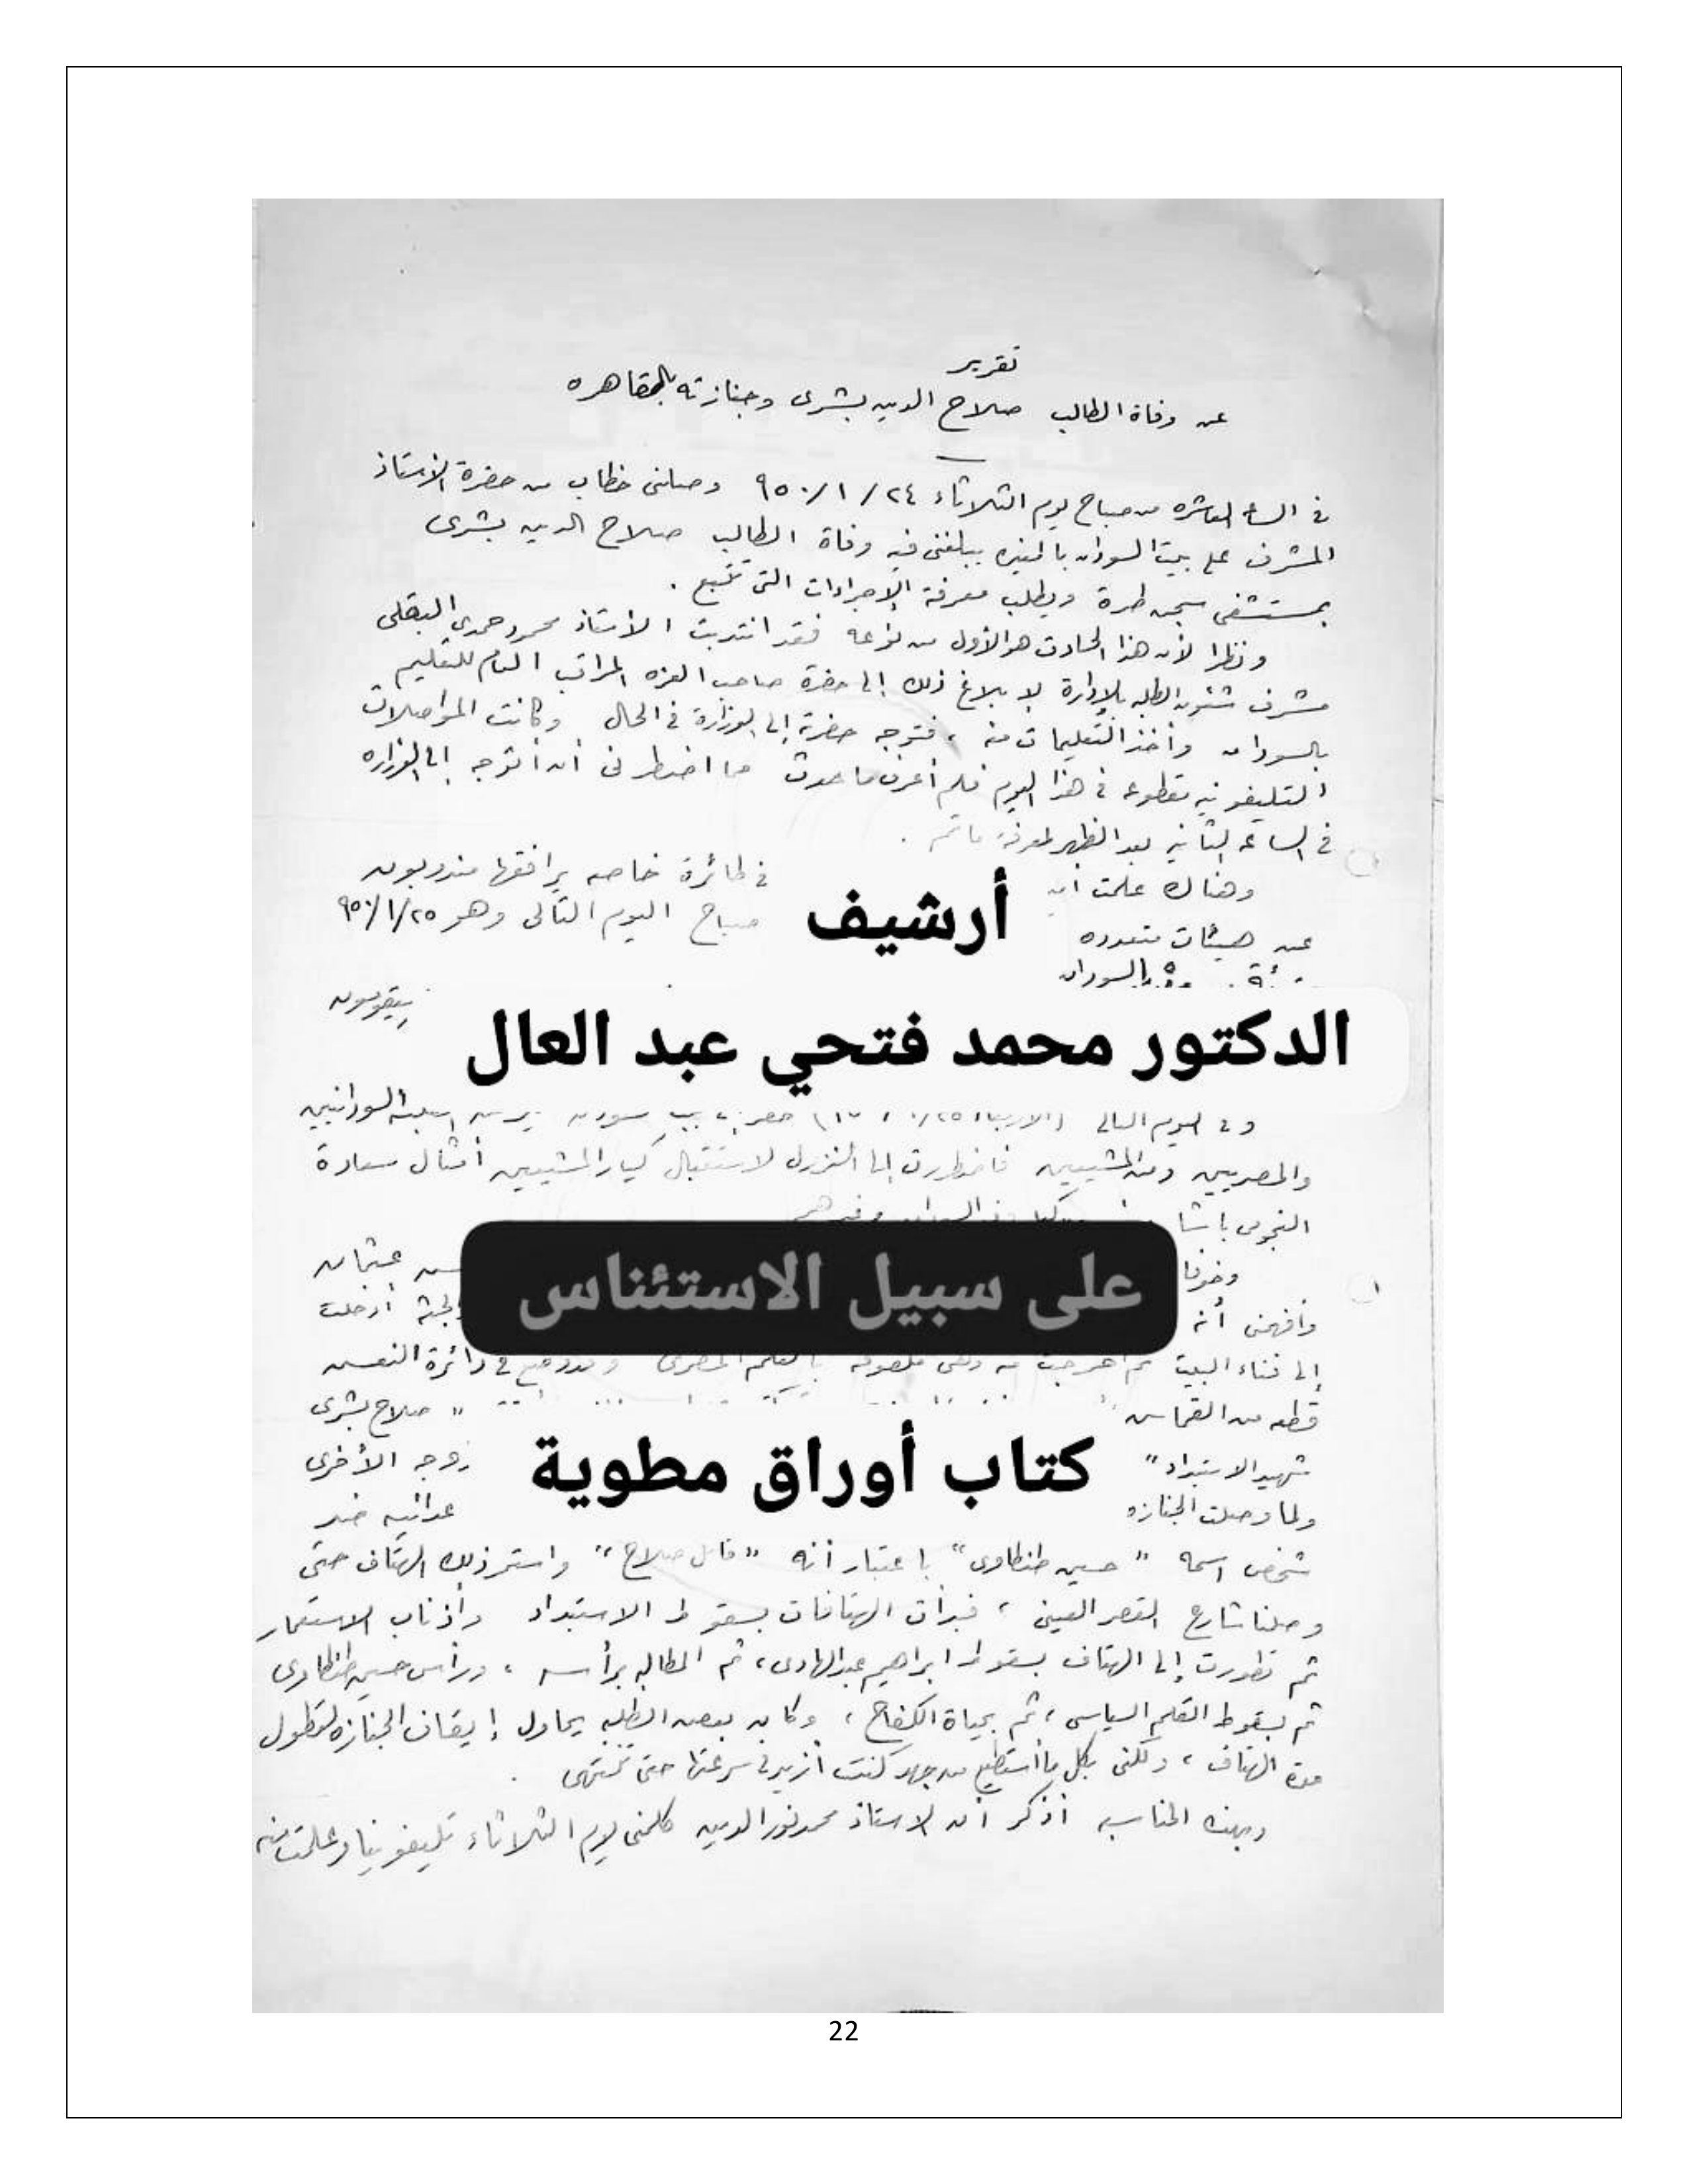 تقرير
عن وفاة الطالب صلاح الدين بشرى وجنازته بالقاهره
في الساعة العاشره من صباح يوم الثلاثاء ٢٤ / ١ / ٩٥٠ وصلنى خطاب من حضرة الأستاذ
المشرف على بيت السودان بالجيزه يبلغنى فيه وفاة الطالب صلاح الدين بشرى
بمستشفى سجن طرة ويطلب معرفة الإجراءات التى تتبع .
ونظرا لأن هذا الحادث هو الأول من نوعه فقد انتدبت الأستاذ محمود حمدى البقلى
مشرف شئون الطلبه بالإدارة لإبلاغ ذلك إلى حضرة صاحب العزه المراقب العام للتعليم
بالسودان وأخذ التعليمات منه ، فتوجه حضرته إلى الوزارة في الحال وكانت المواصلات
التليفونيه مقطوعه في هذا اليوم فلم أعرف ما حدث مما اضطرنى أن أتوجه إلى الوزاره
في الساعه الثانيه بعد الظهر لمعرفة ما تم .
وهناك علمت أن في طائرة خاصه يرافقها مندوبون
عن هيئات متعدده صباح اليوم التالى وهو ٩٥٠/١/٢٥
أرشيف
بالسودان
سيقومون
الدكتور محمد فتحي عبد العال
وفى اليوم التالى
والمصريين ومن المشيعين فاضطررت إلى النزول لاستقبال كبار المشيعين أمثال سعادة
النجومى باشا
على سبيل الاستئناس
وخوفا عثمان
وأفهمنى أنه الجثة أدخلت
إلى فناء البيت ثم أخرجت منه وهى ملفوفه بالعلم المصرى وقد وضع في دائرة النعش
قطعه من القماش " صلاح بشرى
شهيد الاستبداد " زوجه الأخرى
كتاب أوراق مطوية
ولما وصلت الجنازه عدائيه ضد
شخص اسمه " حسين طنطاوى " باعتبار أنه " قاتل صلاح " واستمر ذلك الهتاف حتى
وصلنا شارع القصر العينى ، فبدأت الهتافات بسقوط الاستبداد وأذناب الاستعمار
ثم تطورت إلى الهتاف بسقوط ابراهيم عبد الهادى ، ثم المطالبه برأسه ، ورأس حسين طنطاوى
ثم بسقوط القلم السياسى ، ثم بحياة الكفاح ، وكان بعض الطلبه يحاول إيقاف الجنازه لتطول
مدة الهتاف ، ولكنى بكل ما أستطيع من جهد كنت أزيد في سرعتها حتى تنتهى .
وبهذه المناسبه أذكر أن الاستاذ محمد نور الدين كلمنى يوم الثلاثاء تليفونيا وعلمت منه
22